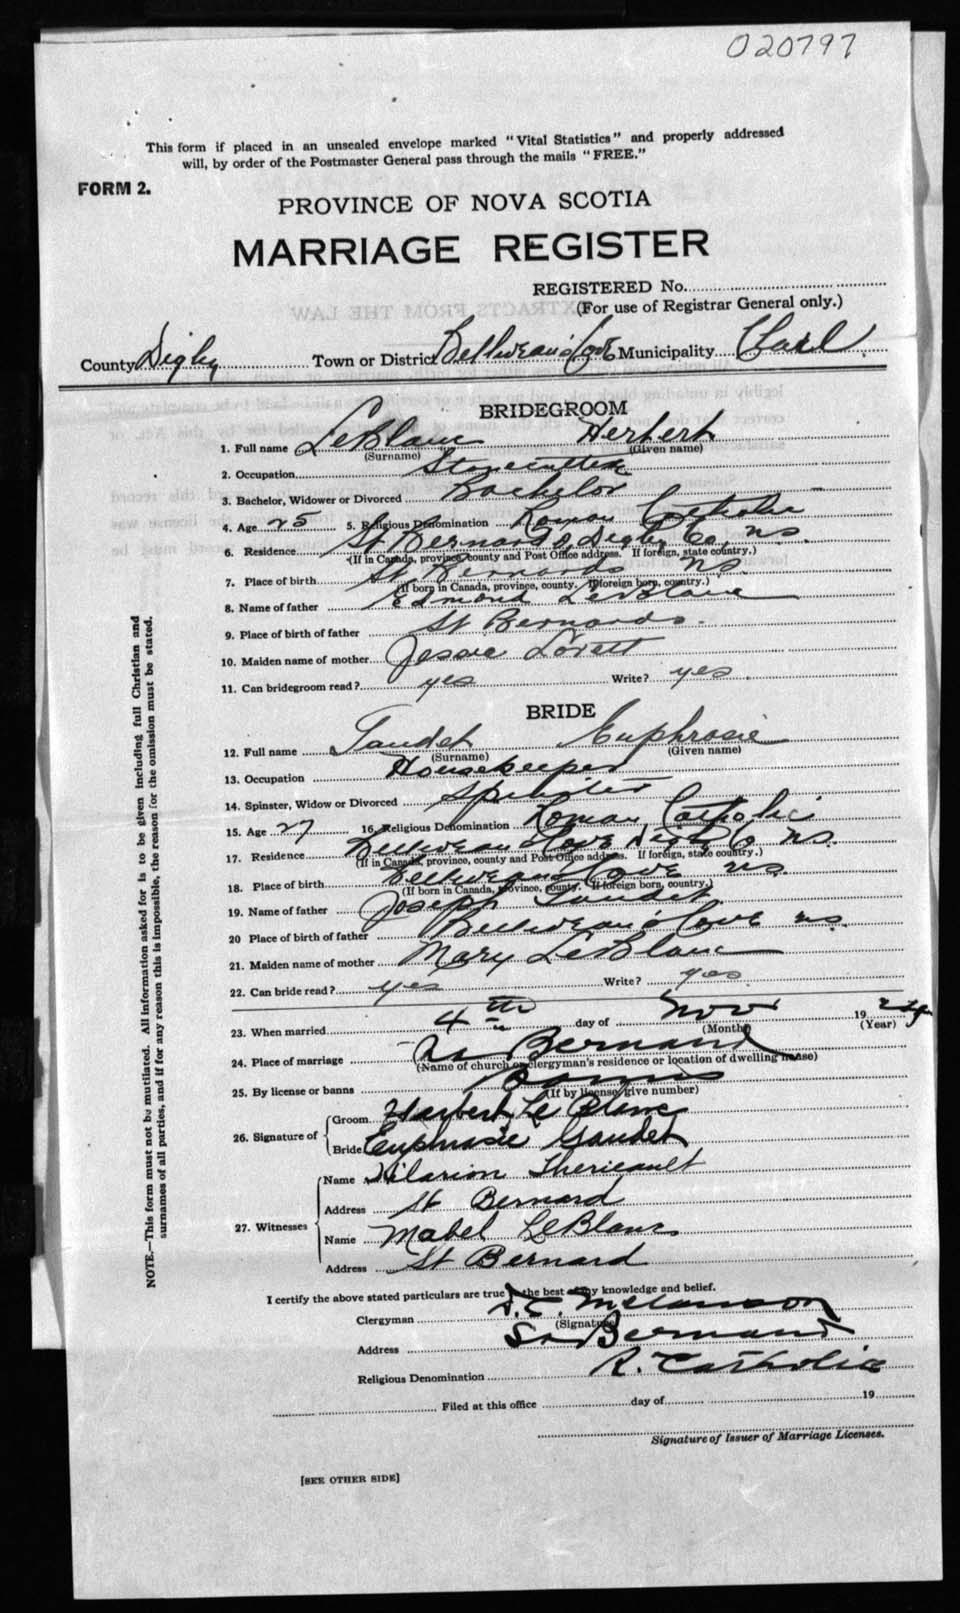 020797
This form if placed in an unsealed envelope marked "Vital Statistics" and properly addressed
will, by order of the Postmaster General pass through the mails "FREE."
FORM 2.
PROVINCE OF NOVA SCOTIA
MARRIAGE REGISTER
REGISTERED No.
(For use of Registrar General only.)
EXTRACTS FROM THE LAW
County Digby Town or District Belliveau's Cove Municipality Clare
BRIDEGROOM
1. Full name LeBlanc Herbert
(Surname) (Given name)
2. Occupation Stonecutter
3. Bachelor, Widower or Divorced Bachelor
4. Age 25 5. Religious Denomination Roman Catholic
6. Residence St Bernards, Digby Co, N.S.
(If in Canada, province, county and Post Office address. If foreign, state country.)
7. Place of birth St Bernards N.S.
(If born in Canada, province, county. If foreign born, country.)
8. Name of father Edmond LeBlanc
9. Place of birth of father St Bernards.
10. Maiden name of mother Jessie Lovett
11. Can bridegroom read? yes Write? yes
BRIDE
12. Full name Gaudet Euphrasie
(Surname) (Given name)
13. Occupation Housekeeper
14. Spinster, Widow or Divorced Spinster
15. Age 27 16. Religious Denomination Roman Catholic
17. Residence Belliveau's Cove Digby Co N.S.
(If in Canada, province, county and Post Office address. If foreign, state country.)
18. Place of birth Belliveau's Cove N.S.
(If born in Canada, province, county. If foreign born, country.)
19. Name of father Joseph Gaudet
20 Place of birth of father Belliveau's Cove N.S.
21. Maiden name of mother Mary LeBlanc
22. Can bride read? yes Write? yes
23. When married 4th day of Nov 19
(Month) (Year)
24. Place of marriage St Bernard
(Name of church or clergyman's residence or location of dwelling house)
25. By license or banns Banns
(If by license, give number)
26. Signature of Groom Herbert Le Blanc
Bride Euphrasie Gaudet
27. Witnesses Name Hilarion Thericault
Address St Bernard
Name Mabel LeBlanc
Address St Bernard
I certify the above stated particulars are true to the best of my knowledge and belief.
Clergyman Melanson
(Signature)
Address St Bernard
Religious Denomination R. Catholic
Filed at this office day of 19
Signature of Issuer of Marriage Licenses.
[SEE OTHER SIDE]
NOTE.—This form must not be mutilated. All information asked for is to be given including full Christian and
surnames of all parties, and if for any reason this is impossible, the reason for the omission must be stated.